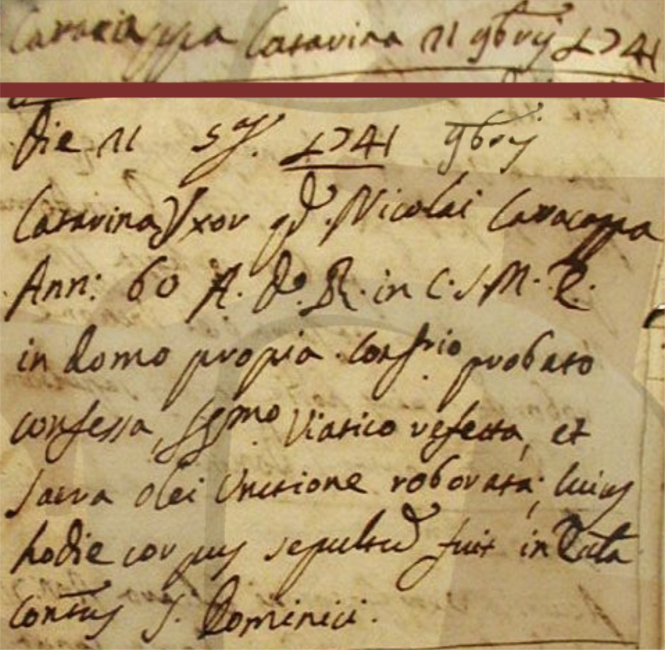 Caracappa Catarina 11 9bris 1741
Die 11 1741 9bris
Catarina Uxor qd. Nicolai Caracappa
Ann: 60 A. D. R. in C. S. M. E.
in domo propia Confrio probato
confessa, SSmo Viatico refecta, et
sacra olei Unctione roborata; cuius
hodie corpus sepultũ fuit in Eccla
Contus S. Dominici.